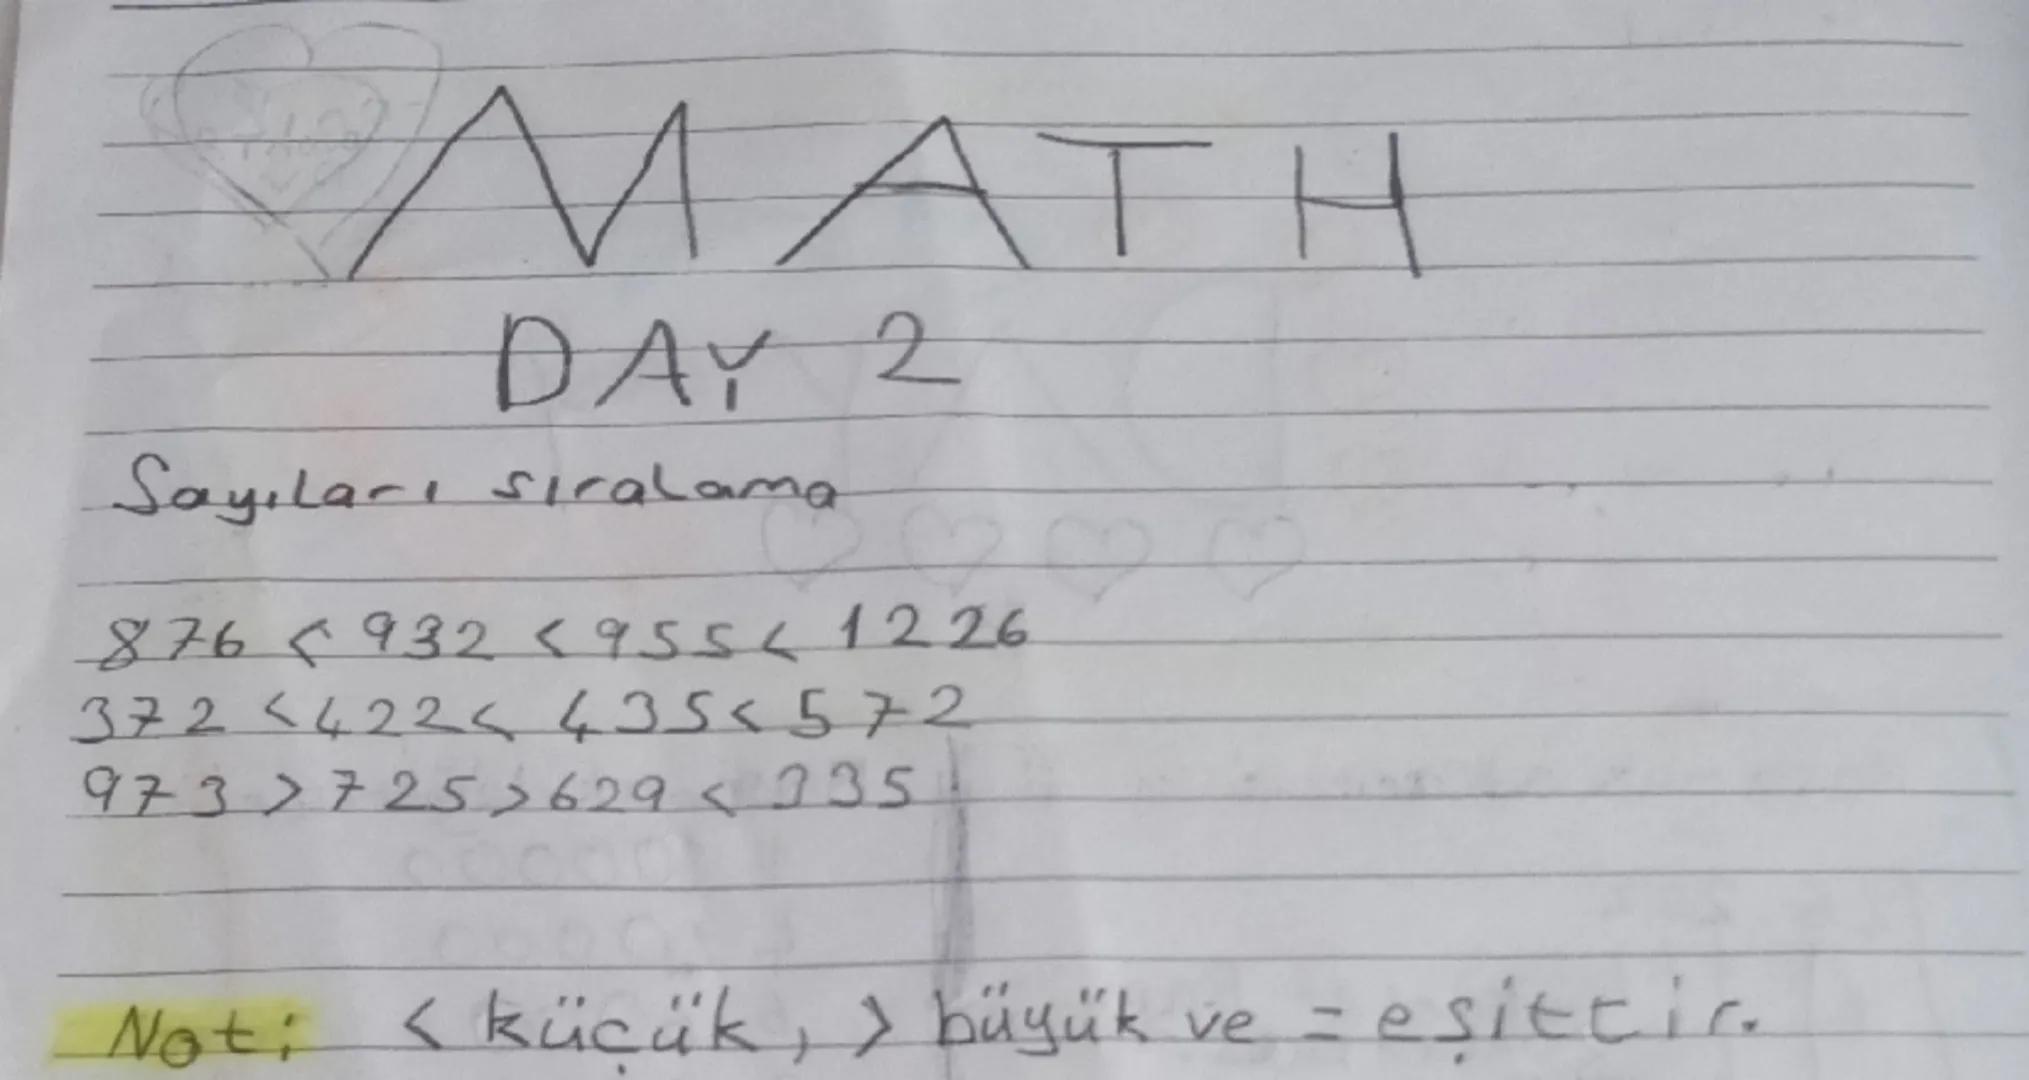 MATH
DAY 2
Sayıları sıralama
876 < 932 < 955 < 1226
372 < 422 < 435 < 572
973 > 725 > 629 < 335
Not: < küçük, > büyük ve = eşittir.